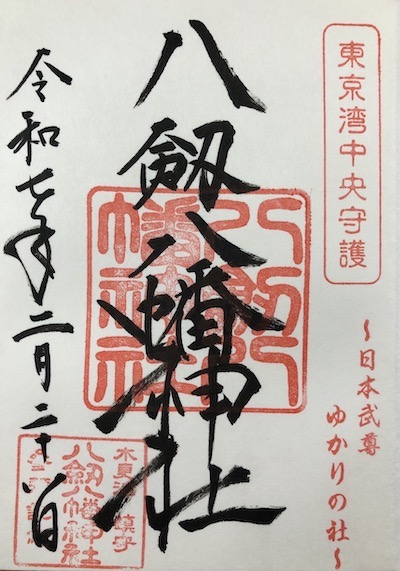 東京湾中央守護
〜日本武尊
ゆかりの社〜
八劔八幡神社
令和七年二月二十八日
八劔八
幡神社
八劔八幡神社